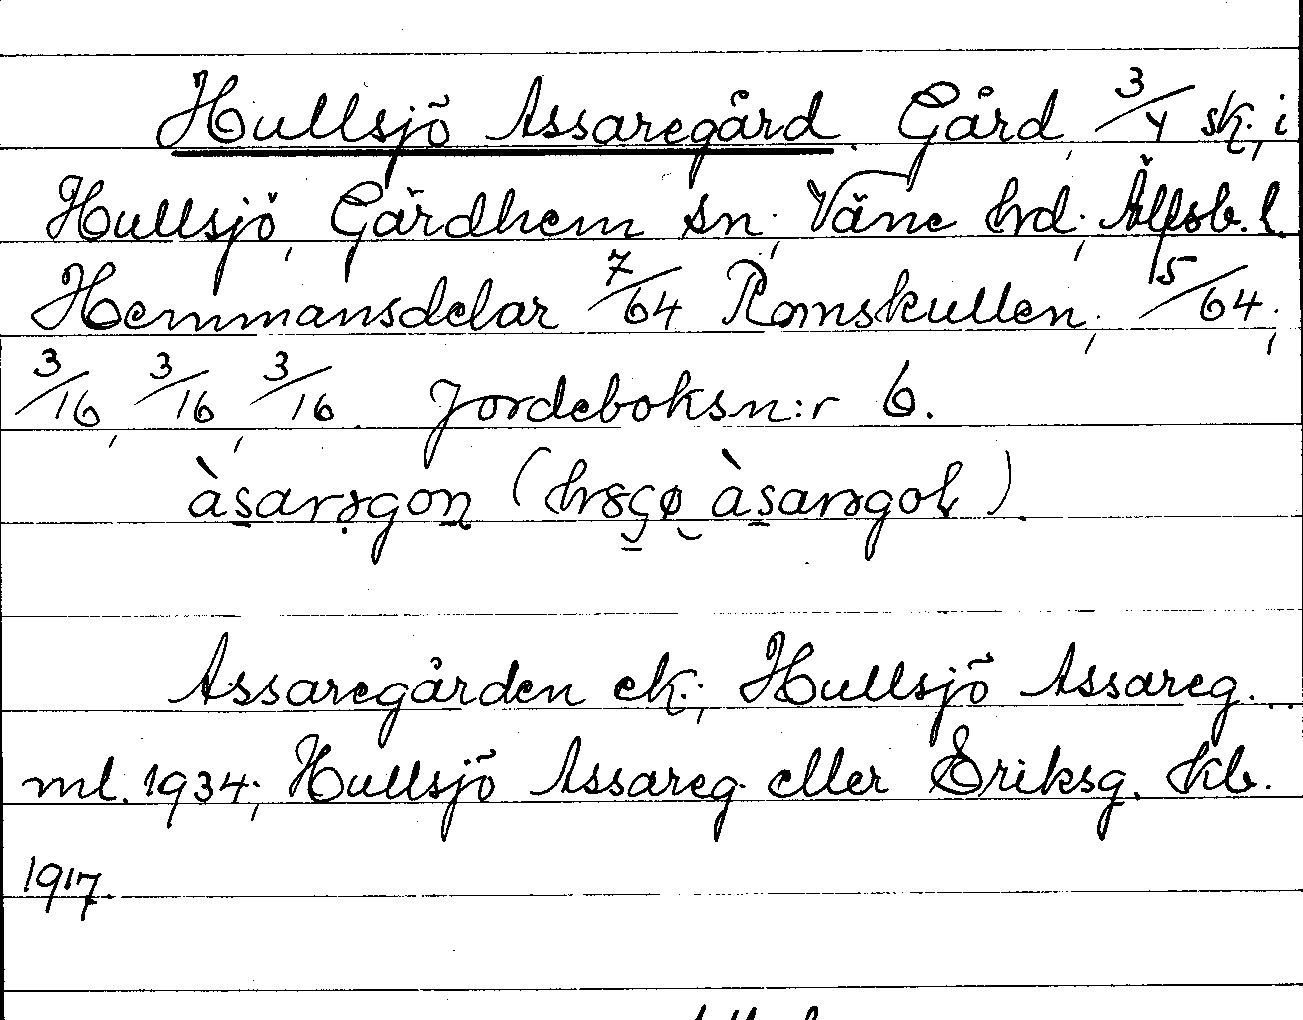 Hullsjö Assaregård. Gård, 3/4 sk. i
Hullsjö, Gärdhem sn, Väne hrd, Älfsb. l.
Hemmansdelar 7/64 Romskullen, 15/64,
3/16, 3/16, 3/16. Jordeboksn:r 6.
Assaregården ek.; Hullsjö Assareg.
ml. 1934; Hullsjö Assareg. eller Eriksg. kb.
1917.